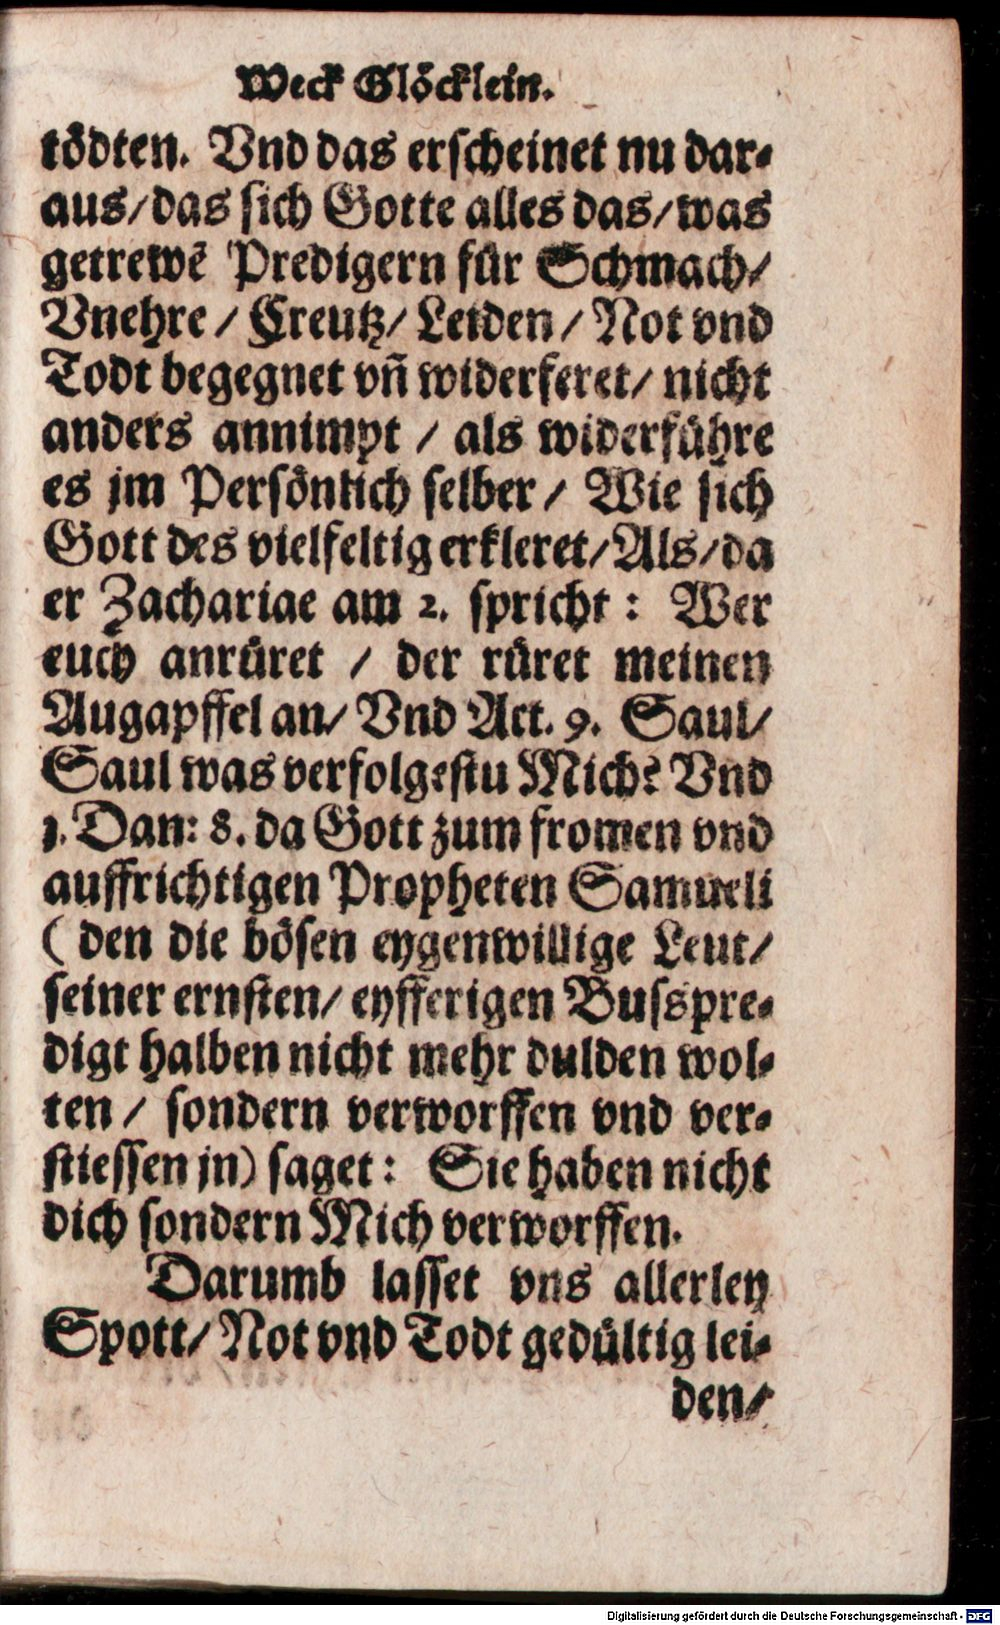 Weck Glöcklein.
tödten. Vnd das erscheinet nu dar-
aus/das sich Gotte alles das/was
getrewē Predigern für Schmach/
Vnehre / Creutz/ Leiden / Not vnd
Todt begegnet vñ widerferet/ nicht
anders annimpt / als widerführe
es jm Persönlich selber / Wie sich
Gott des vielfeltig erkleret/Als/da
er Zachariae am 2. spricht : Wer
euch anrüret / der rüret meinen
Augapffel an/ Vnd Act. 9. Saul/
Saul was verfolgestu Mich? Vnd
1. Dan: 8. da Gott zum fromen vnd
auffrichtigen Propheten Samueli
( den die bösen eygenwillige Leut/
seiner ernsten/ eyfferigen Busspre-
digt halben nicht mehr dulden wol-
ten / sondern verworffen vnd ver-
stiessen jn) saget : Sie haben nicht
dich sondern Mich verworffen.
Darumb lasset vns allerley
Spott/ Not vnd Todt gedültig lei-
den/
Digitalisierung gefördert durch die Deutsche Forschungsgemeinschaft - DFG